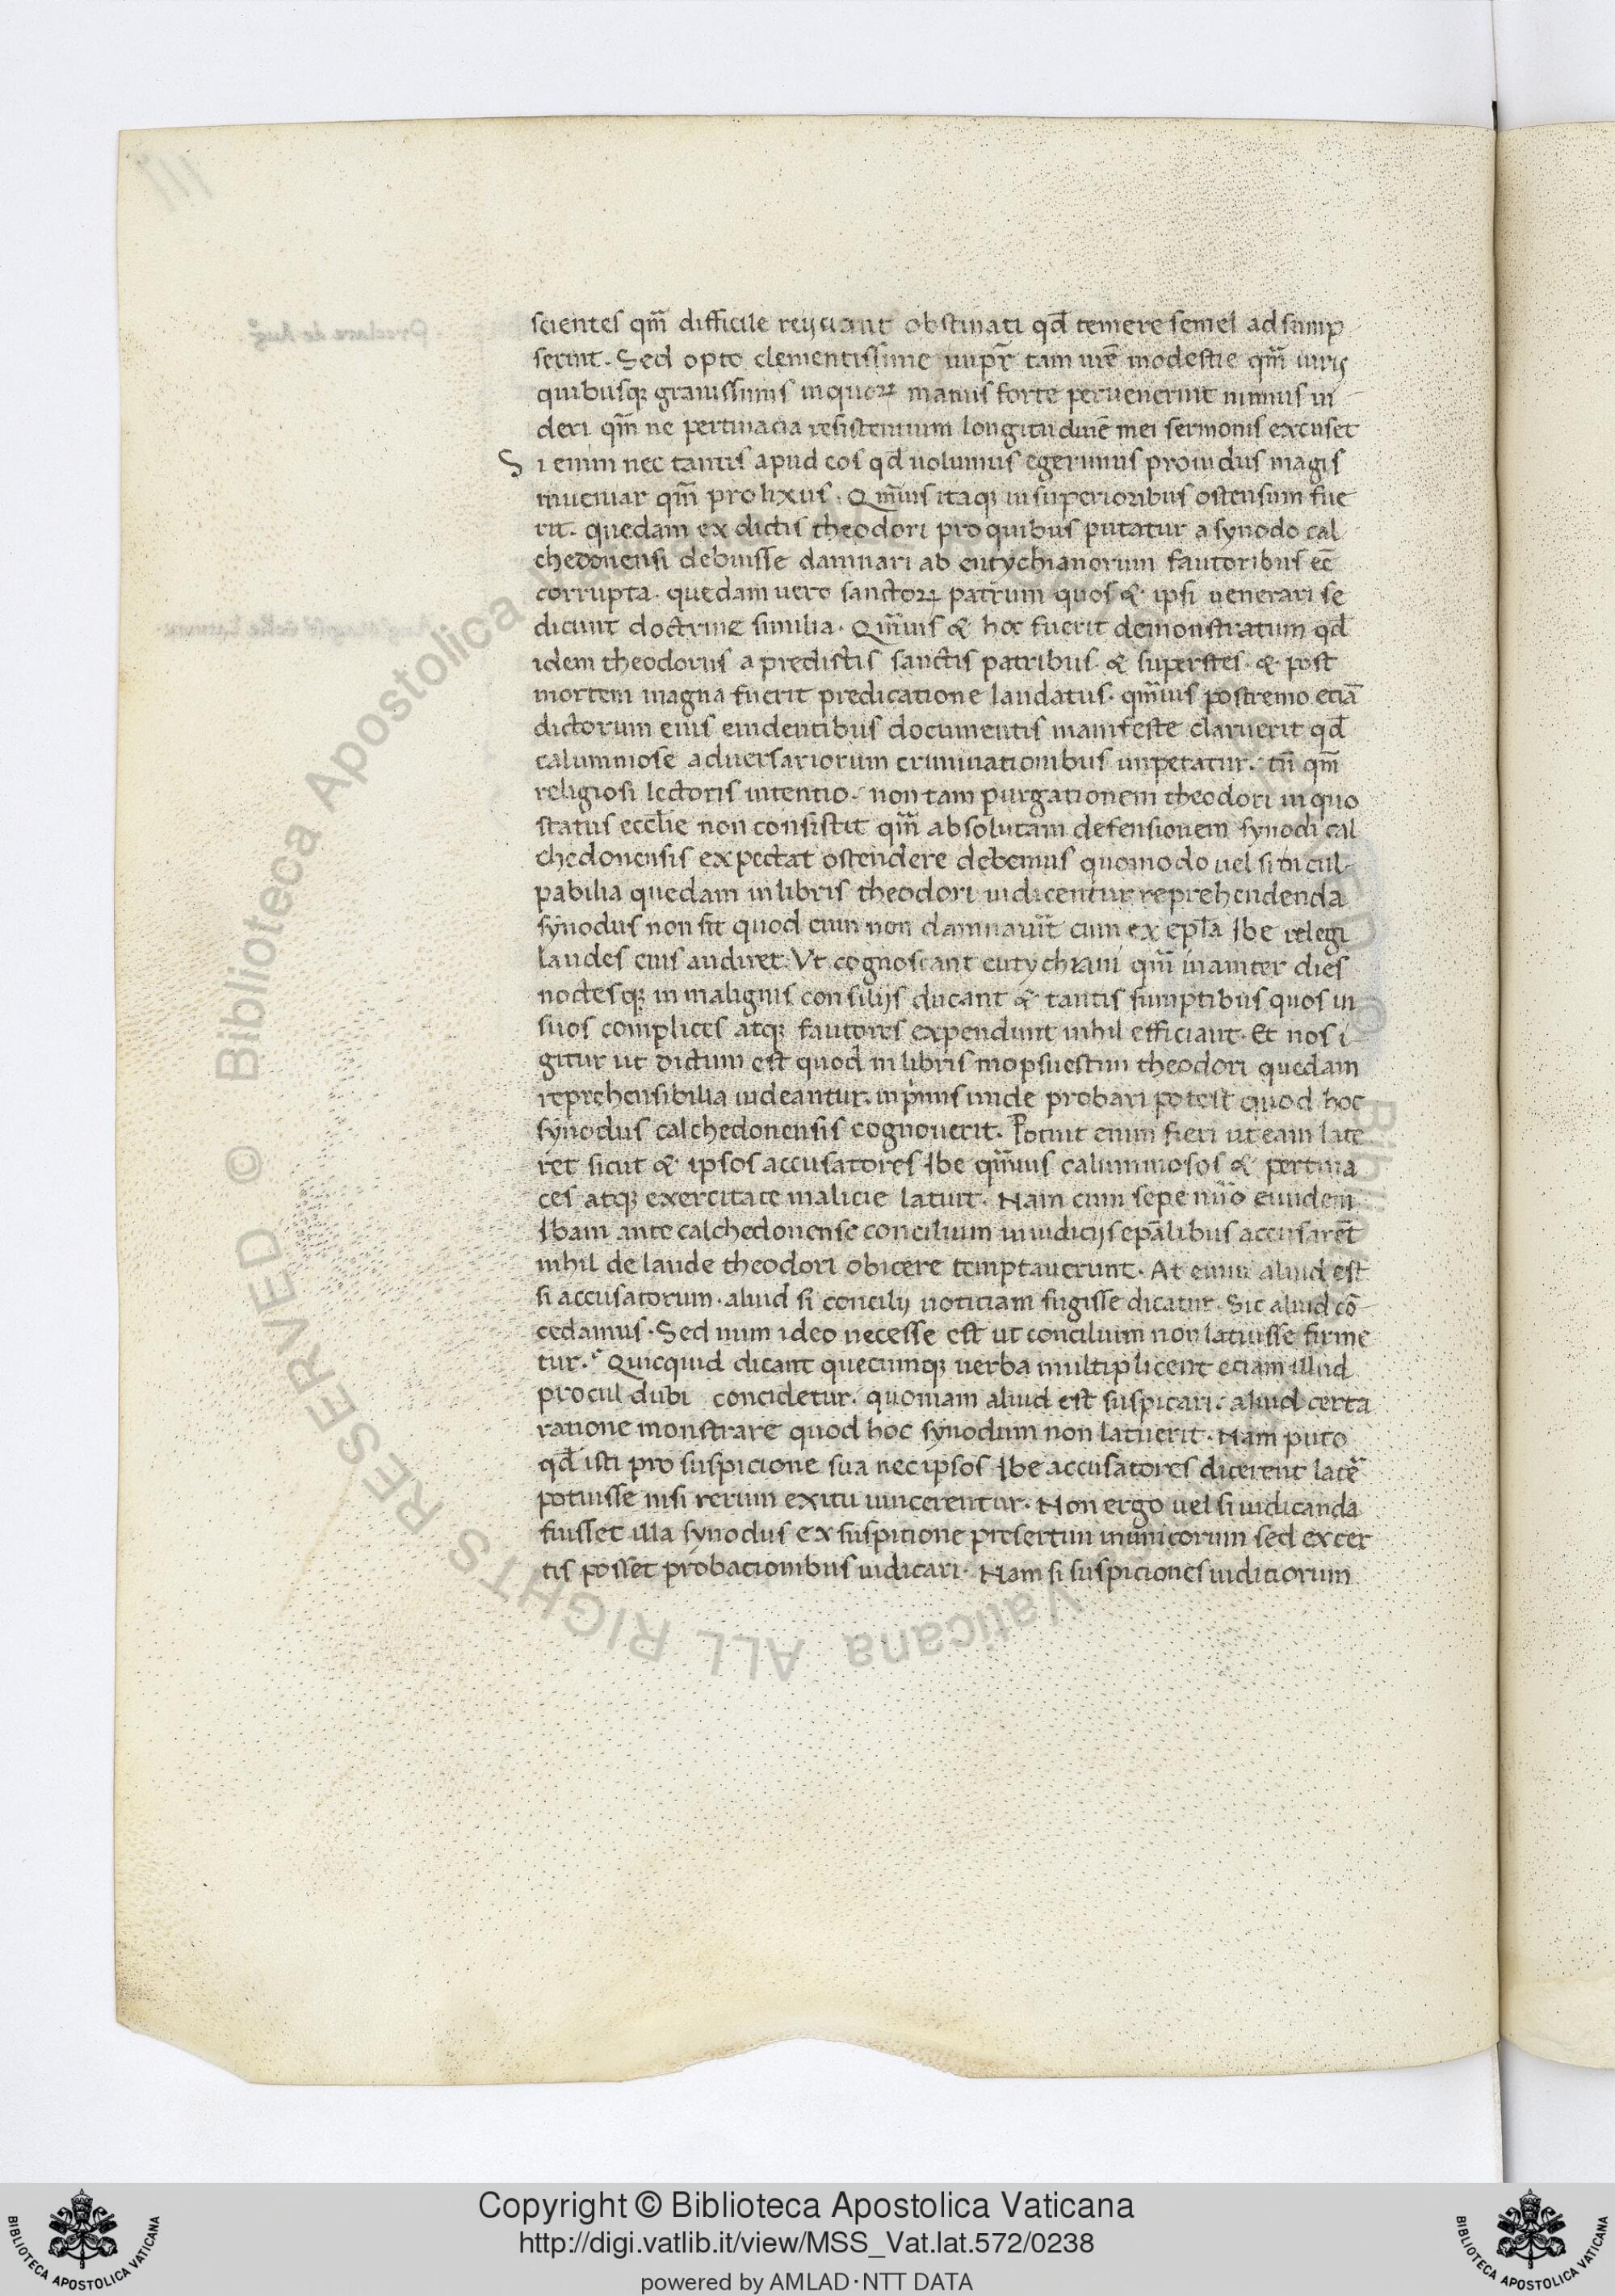 scientes qm̄ difficile reijciant obstinati qđ temere semel adsump
serint. Sed opto clementissime impr̄ tam ure᷑ modestie qm̄ uiris
quibusq; grauissimis inquoꝝ manus forte peruenerint nimius ui
deri qm̄ ne pertinacia resistentium longitudinē mei sermonis excuset
Si enim nec tantis apud eos qđ uolumus egerimus prouidus magis
inueniar qm̄ prolixus. Qm̄uis itaq; insuperioribus ostensum fue
rit. quedam ex dictis theodori pro quibus putatur a synodo cal
chedonensi debuisse damnari ab eutychianorum fautoribus eē
corrupta. quedam uero sanctoꝝ patrum quos & ipsi uenerari se
dicunt doctrine similia. Qm̄uis & hoc fuerit demonstratum qđ
idem theodorus a predictis sanctis patribus. & superstes. & post
mortem magna fuerit predicatione laudatus. qm̄uis postremo etiā
dictorum eius euidentibus documentis manifeste claruerit qđ
calumniose aduersariorum criminationibus impetatur. tn̄ qm̄
religiosi lectoris intentio. non tam purgationem theodori inquo
status eccl̄ie non consistit qm̄ absolutam defensionem synodi cal
chedonensis expectat ostendere debemus quomodo uel si in cul
pabilia quedam inlibris theodori iudicentur reprehendenda
synodus non sit quod eum non damnauit cum ex epl̄a Ibe relegi
laudes eius audiret. Vt cognoscant eutychiani qm̄ inaniter dies
noctesq; in malignis consilijs ducant & tantis sumptibus quos in
suos complices atq; fautores expendunt nihil efficiant. Et nos i
gitur ut dictum est quod in libris mopsuestini theodori quedam
reprehensibilia uideantur. inprimis unde probari potest quod hoc
synodus calchedonensis cognouerit. Potuit enim fieri ut eam late
ret sicut & ipsos accusatores Ibe qm̄uis calumniosos & pertina
ces atq; exercitate malicie latuit. Nam cum sepe nūo eundem
Ibam ante calchedonense concilium iniudicijs epālibus accusarēt
nihil de laude theodori obicere temptauerunt. At enim aliud est
si accusatorum. aliud si concilij noticiam fugisse dicatur. Sic aliud cō
cedamus. Sed num ideo necesse est ut concilium non latuisse firme
tur. Quicquid dicant quecunq; uerba multiplicent etiam illud
procul dubi concidetur. quoniam aliud est suspicari. aliud certa
ratione monstrare quod hoc synodum non latuerit. Nam puto
qđ isti pro suspicione sua nec ipsos Ibe accusatores dicerent latē
potuisse nisi rerum exitu uincerentur. Non ergo uel si iudicanda
fuisset illa synodus ex suspitione presertim inimicorum sed ex cer
tis posset probationibus iudicari. Nam si suspiciones iuditiorum
Copyright © Biblioteca Apostolica Vaticana
http://digi.vatlib.it/view/MSS_Vat.lat.572/0238
powered by AMLAD·NTT DATA
BIBLIOTECA APOSTOLICA VATICANA
BIBLIOTECA APOSTOLICA VATICANA
© Biblioteca Apostolica Vaticana ALL RIGHTS RESERVED